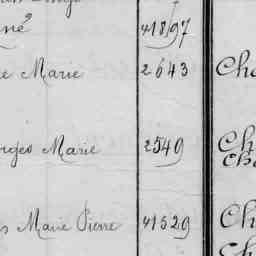 né 41897
e Marie 2643 Cha
orges Marie 2549 Ch
Cha
s Marie Pierre 41529 Ch
Ch